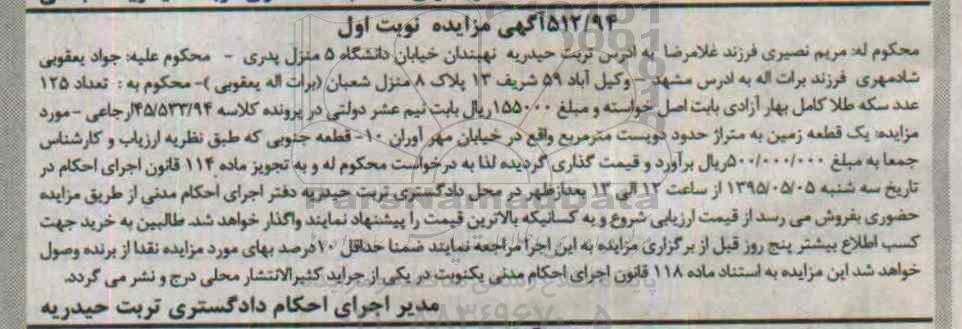 ۵۱۲/۹۴آگهی مزایده نوبت اول
محکوم له: مریم نصیری فرزند غلامرضا به ادرس تربت حیدریه نهبندان خیابان دانشگاه ۵ منزل پدری - محکوم علیه: جواد یعقوبی
شادمهری فرزند برات اله به ادرس مشهد - وکیل آباد ۵۹ شریف ۱۳ پلاک ۸ منزل شعبان (برات اله یعقوبی )- محکوم به : تعداد ۱۲۵
عدد سکه طلا کامل بهار آزادی بابت اصل خواسته و مبلغ ۱۵۵۰۰۰ریال بابت نیم عشر دولتی در پرونده کلاسه ۴۵/۵۳۳/۹۴ارجاعی -مورد
مزایده: یک قطعه زمین به متراژ حدود دویست مترمربع واقع در خیابان مهر آوران ۱۰- قطعه جنوبی که طبق نظریه ارزیاب و کارشناس
جمعا به مبلغ ۵۰۰/۰۰۰/۰۰۰ریال برآورد و قیمت گذاری گردیده لذا به درخواست محکوم له و به تجویز ماده ۱۱۴ قانون اجرای احکام در
تاریخ سه شنبه ۱۳۹۵/۰۵/۰۵ از ساعت ۱۲ الی ۱۳ بعدازظهر در محل دادگستری تربت حیدریه دفتر اجرای احکام مدنی از طریق مزایده
حضوری بفروش می رسد از قیمت ارزیابی شروع و به کسانیکه بالاترین قیمت را پیشنهاد نمایند واگذار خواهد شد. طالبین به خرید جهت
کسب اطلاع بیشتر پنج روز قبل از برگزاری مزایده به این اجرا مراجعه نمایند ضمنا حداقل ۱۰درصد بهای مورد مزایده نقدا از برنده وصول
خواهد شد این مزایده به استناد ماده ۱۱۸ قانون اجرای احکام مدنی یکنوبت در یکی از جراید کثیرالانتشار محلی درج و نشر می گردد.
مدیر اجرای احکام دادگستری تربت حیدریه